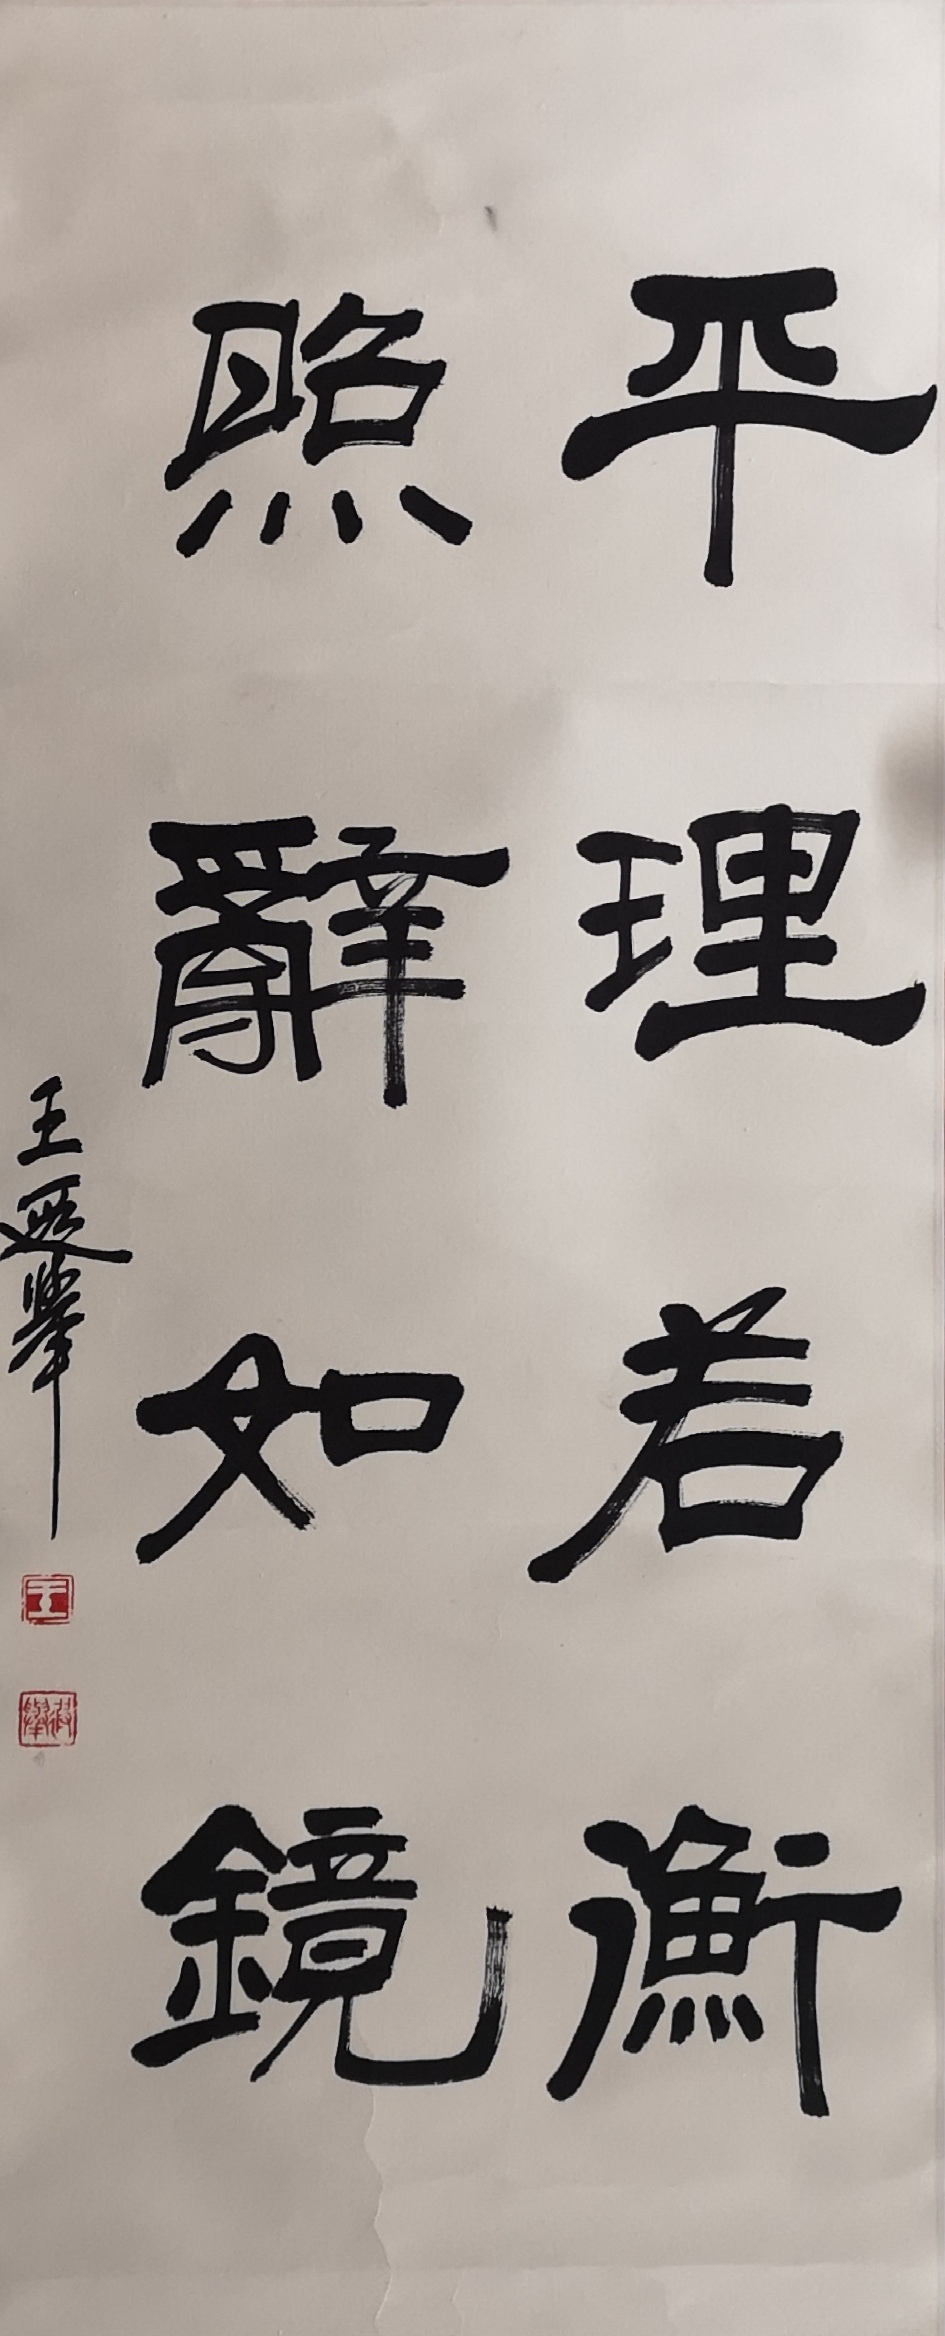 平理若衡
照辭如鏡
王遐舉
王
遐舉